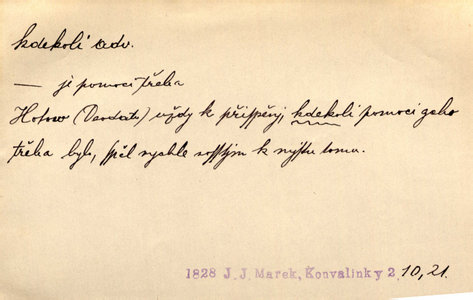 kdekoli adv.
— je pomoci třeba
Hotow (Deodat) wždy k přispěnj, kdekoli pomoci geho
třeba bylo, spěl rychle
k mjstu tomu.
1828 J. J. Marek, Konvalinky 2, 10, 21.